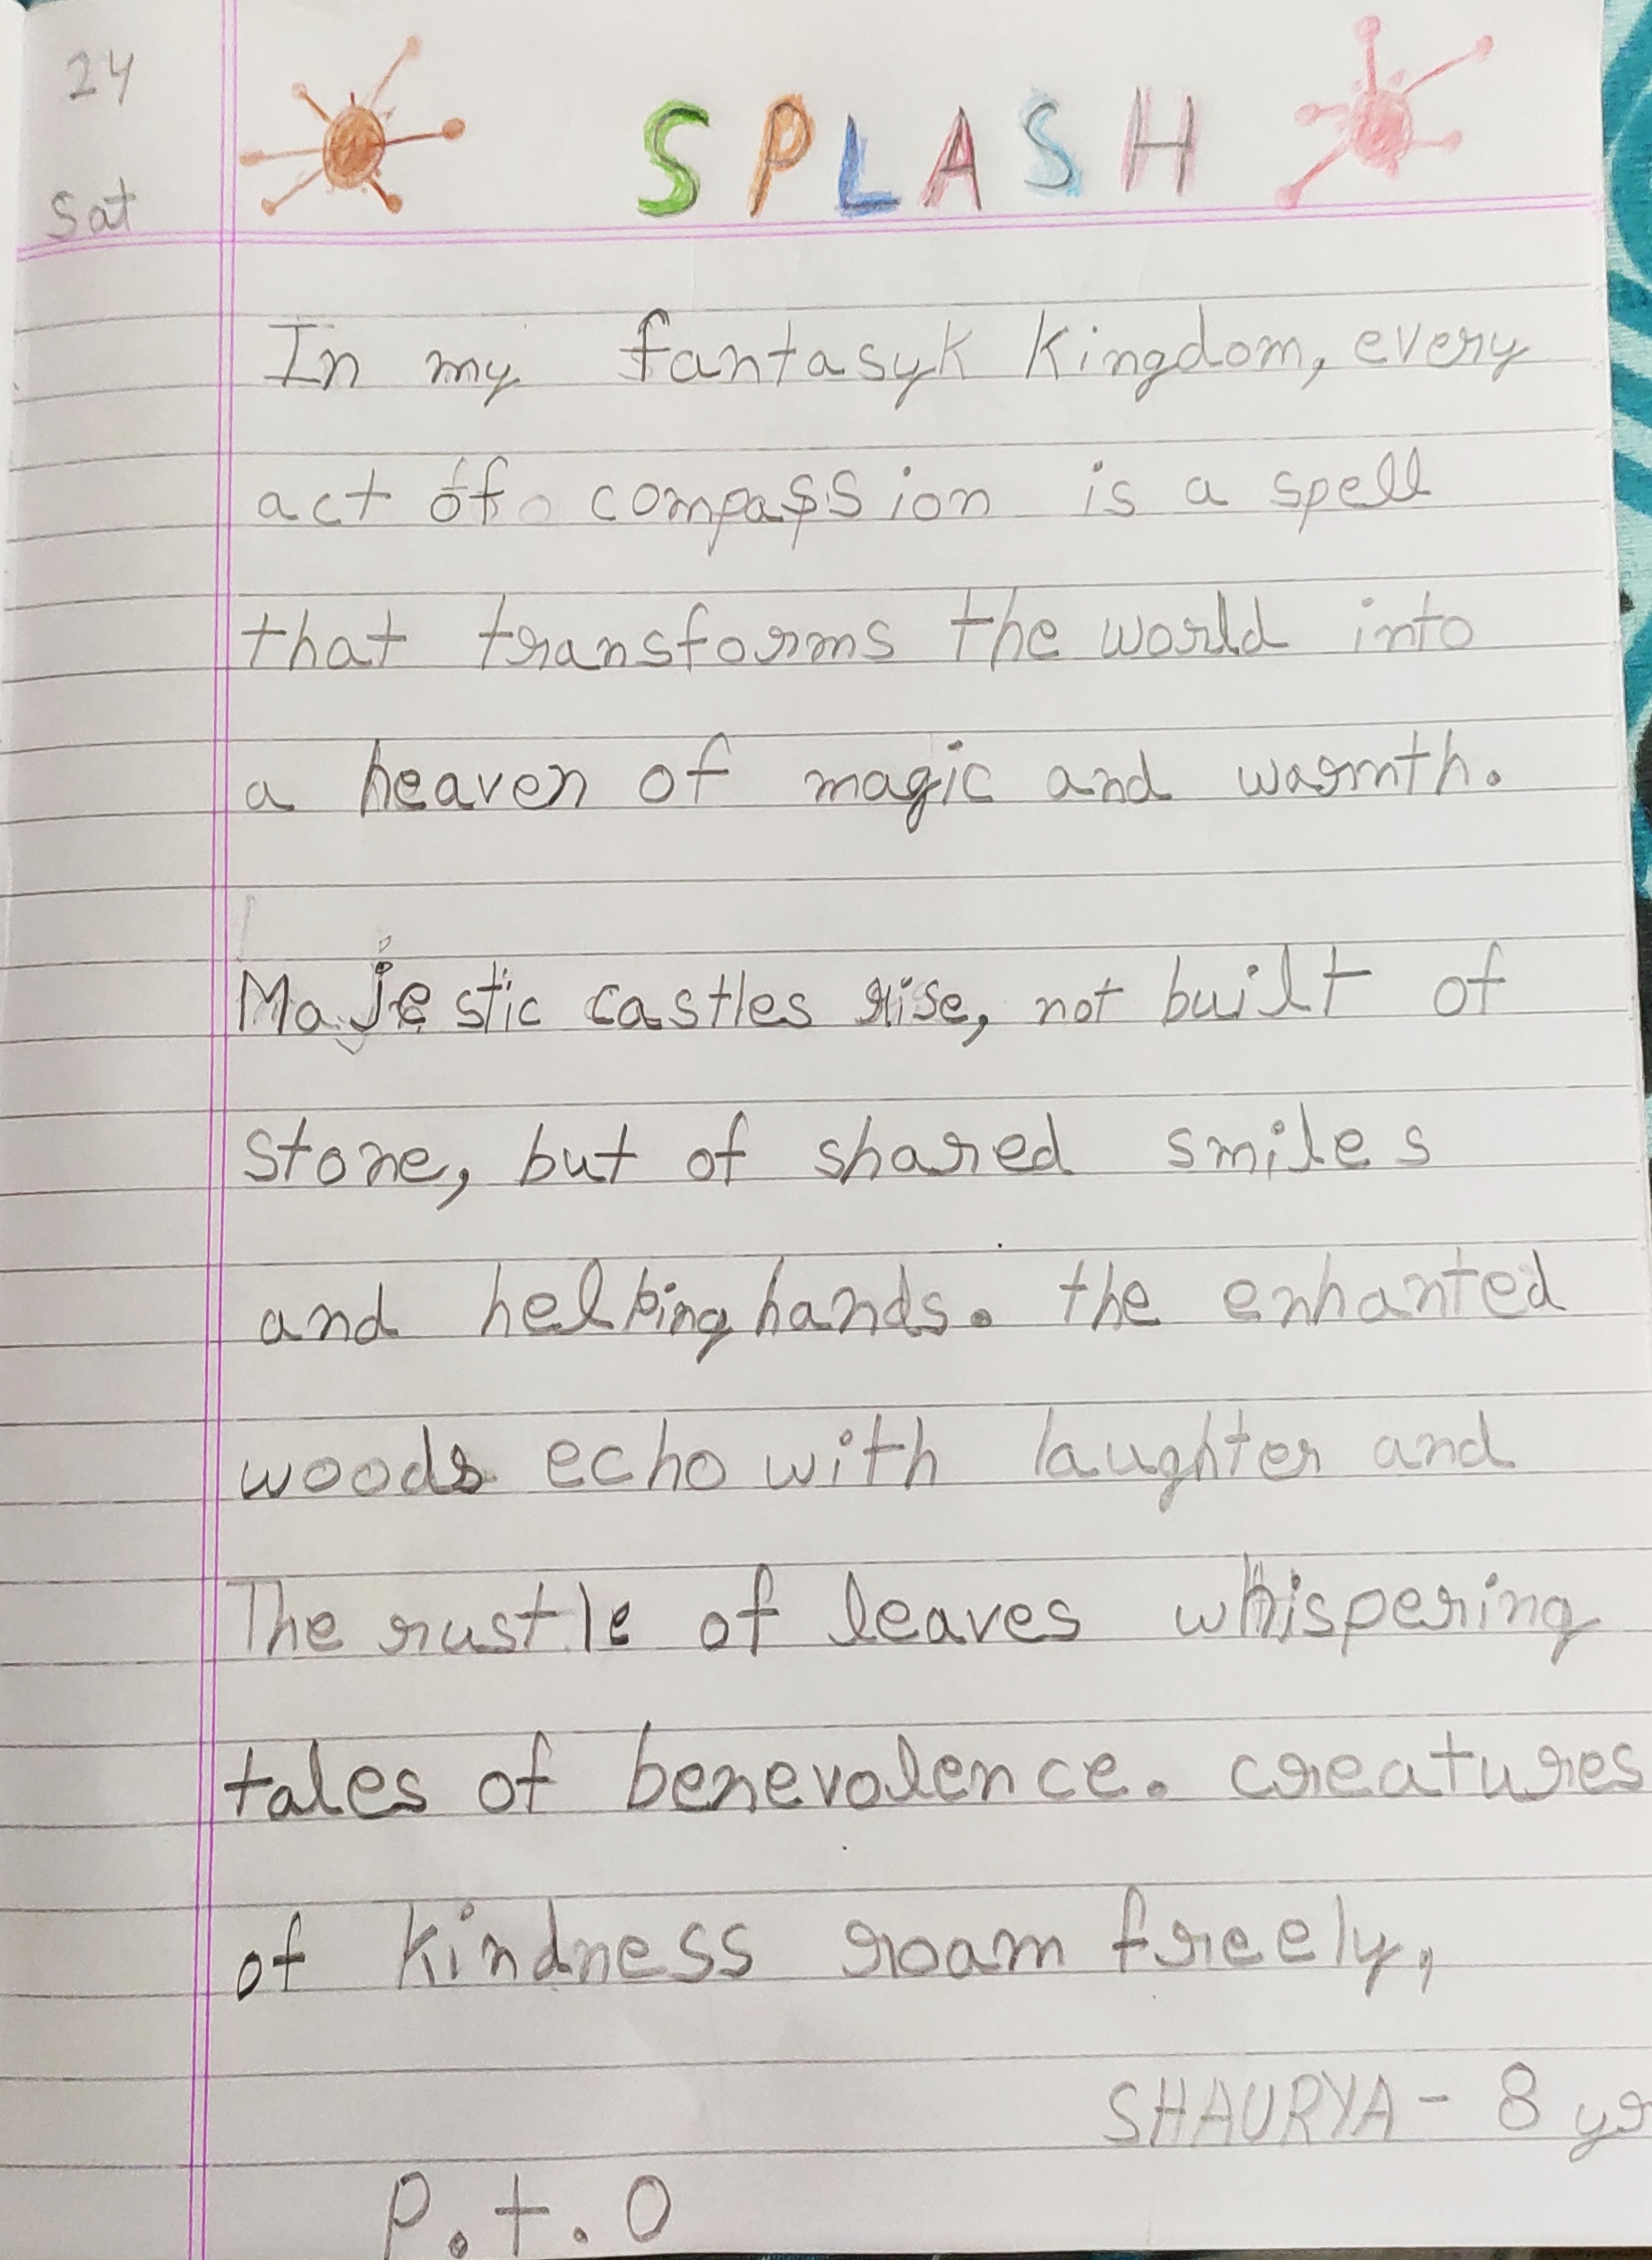 24
Sat
SPLASH
In my fantasyk kingdom, every
act of compassion is a spell
that transforms the world into
a heaven of magic and warmth.
Majestic castles rise, not built of
stone, but of shared smiles
and helping hands. the enhanted
woods echo with laughter and
The rustle of leaves whispering
tales of benevolence. creatures
of kindness roam freely,
SHAURYA - 8 yr
P.t.O